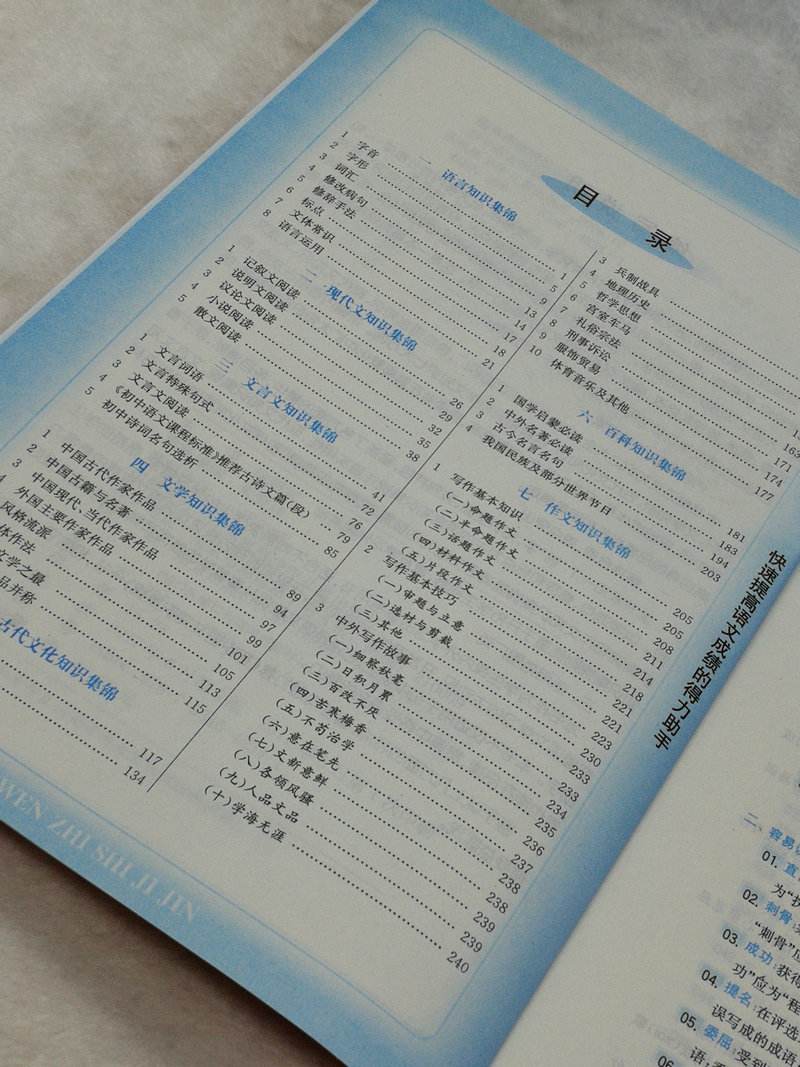 目录
一 语言知识集锦
1 字音 1
2 字形 5
3 词汇 9
4 修改病句 13
5 修辞手法 14
6 标点 17
7 文体常识 18
8 语言运用 21
二 现代文知识集锦
1 记叙文阅读 26
2 说明文阅读 29
3 议论文阅读 32
4 小说阅读 35
5 散文阅读 38
三 文言文知识集锦
1 文言词语 41
2 文言特殊句式 72
3 文言文阅读 76
4 《初中语文课程标准》推荐古诗文篇(段) 79
5 初中诗词名句选析 85
四 文学知识集锦
1 中国古代作家作品 89
2 中国古籍与名著 94
3 中国现代、当代作家作品 97
4 外国主要作家作品 99
风格流派 101
体作法 105
文学之最 113
品并称 115
古代文化知识集锦
117
134
3 兵制战具
4 地理历史
5 哲学思想
6 宫室车马
7 礼俗宗法 163
8 刑事诉讼 171
9 服饰贸易 174
10 体育音乐及其他 177
六 百科知识集锦
1 国学启蒙必读 181
2 中外名著必读 183
3 古今名言名句 194
4 我国民族及部分世界节日 203
七 作文知识集锦
1 写作基本知识 205
(一)命题作文 205
(二)半命题作文 208
(三)话题作文 211
(四)材料作文 214
(五)片段作文 218
2 写作基本技巧 221
(一)审题与立意 221
(二)选材与剪裁 223
(三)其他 230
3 中外写作故事 233
(一)细察秋毫 233
(二)日积月累 234
(三)百改不厌 235
(四)苦寒梅香 236
(五)不苟治学 237
(六)意在笔先 238
(七)文新意鲜 238
(八)各领风骚 239
(九)人品文品 239
(十)学海无涯 240
WEN ZHI SHI JI JIN
快速提高语文成绩的得力助手
二、容易
01. 直
为“
02. 刺骨:
“刺骨”应
03. 成功:获得
功”应为“程
04. 提名:在评选
误写成的成语
05. 委屈:受到
语;
06